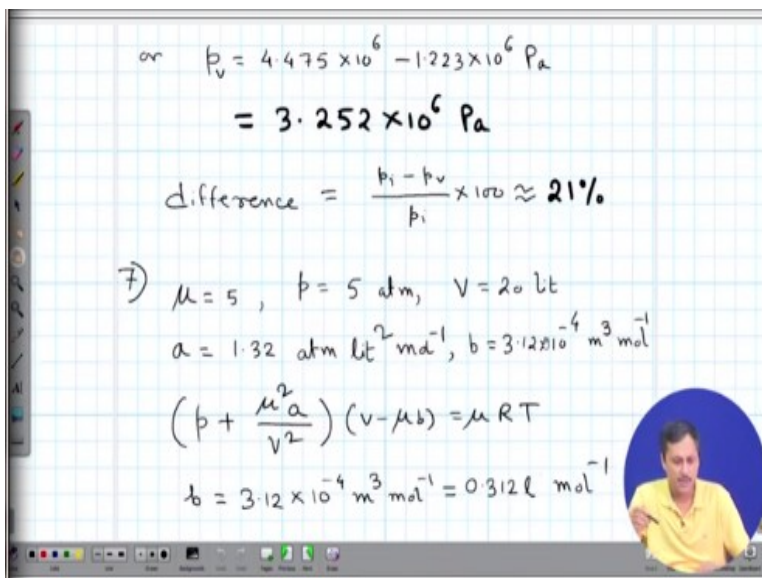 or p_v = 4.475 ×10^6 − 1.223×10^6 Pa
= 3.252×10^6 Pa
difference = (p_i − p_v)/p_i ×100 ≈ 21%
7) μ = 5 , p = 5 atm, V = 20 lit
a = 1.32 atm lit^2 mol^-1, b = 3.12×10^-4 m^3 mol^-1
(p + μ^2 a/V^2) (V − μb) = μRT
b = 3.12 × 10^-4 m^3 mol^-1 = 0.312 l mol^-1